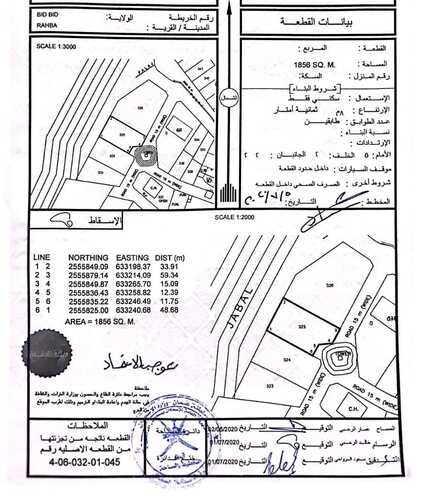 BID BID
RAHBA
الولاية:
رقم الخريطة
المدينة / القرية :
بيانات القطعة
SCALE 1:3000
القطعة : المربع :
المساحة : 1856 SQ. M.
رقم المنزل : السكة:
شروط البناء
الإستعمال : سكني فقط
الإرتفاع : ٨م ثمانية أمتار
عدد الطوابق : طابقين
نسبة البناء :
الإرتدادات :
الأمام: ٥ الخلف: ٢ الجانبان: ٢ ٢
موقف السيارات : داخل حدود القطعة
شروط أخرى : الصرف الصحي داخل القطعة
المخطط : التاريخ:
شمال
الإسقاط
SCALE 1:2000
LINE NORTHING EASTING DIST (m)
1 2 2555849.09 633198.37 33.91
2 3 2555879.14 633214.09 59.34
3 4 2555849.87 633265.70 15.09
4 5 2555836.43 633258.82 12.39
5 6 2555835.22 633246.49 11.75
6 1 2555825.00 633240.68 48.68
AREA = 1856 SQ. M.
JABAL
325
323
ROAD 15 m (WIDE)
ROAD 15 m (WIDE)
C.H.
ملاحظة
المساح التوقيع 02/06/2020
الرسام التوقيع 01/07/2020
التدقيق التوقيع 01/07/2020
ملاحظات :
القطعه ناتجه من تجزئتها
من القطعه الاصليه رقم
4-06-032-01-045